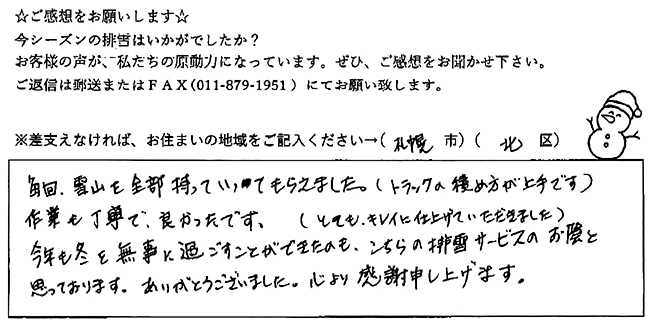 ☆ご感想をお願いします☆
今シーズンの排雪はいかがでしたか？
お客様の声が、私たちの原動力になっています。ぜひ、ご感想をお聞かせ下さい。
ご返信は郵送またはＦＡＸ(011-879-1951）にてお願い致します。
※差支えなければ、お住まいの地域をご記入ください→(札幌 市）( 北 区）
毎回、雪山を全部持っていってもらえました。(トラックの積め方が上手です)
作業も丁寧で、良かったです。 (とても、キレイに仕上げていただきました)
今年も冬を無事に過ごすことができたのも、こちらの排雪サービスのお陰と
思っております。ありがとうございました。心より感謝申し上げます。